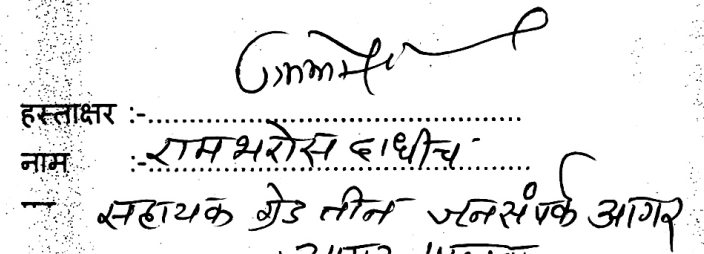 हस्ताक्षर :-
नाम :- रामभरोस दाधीच
सहायक ग्रेड तीन जनसंपर्क आगर